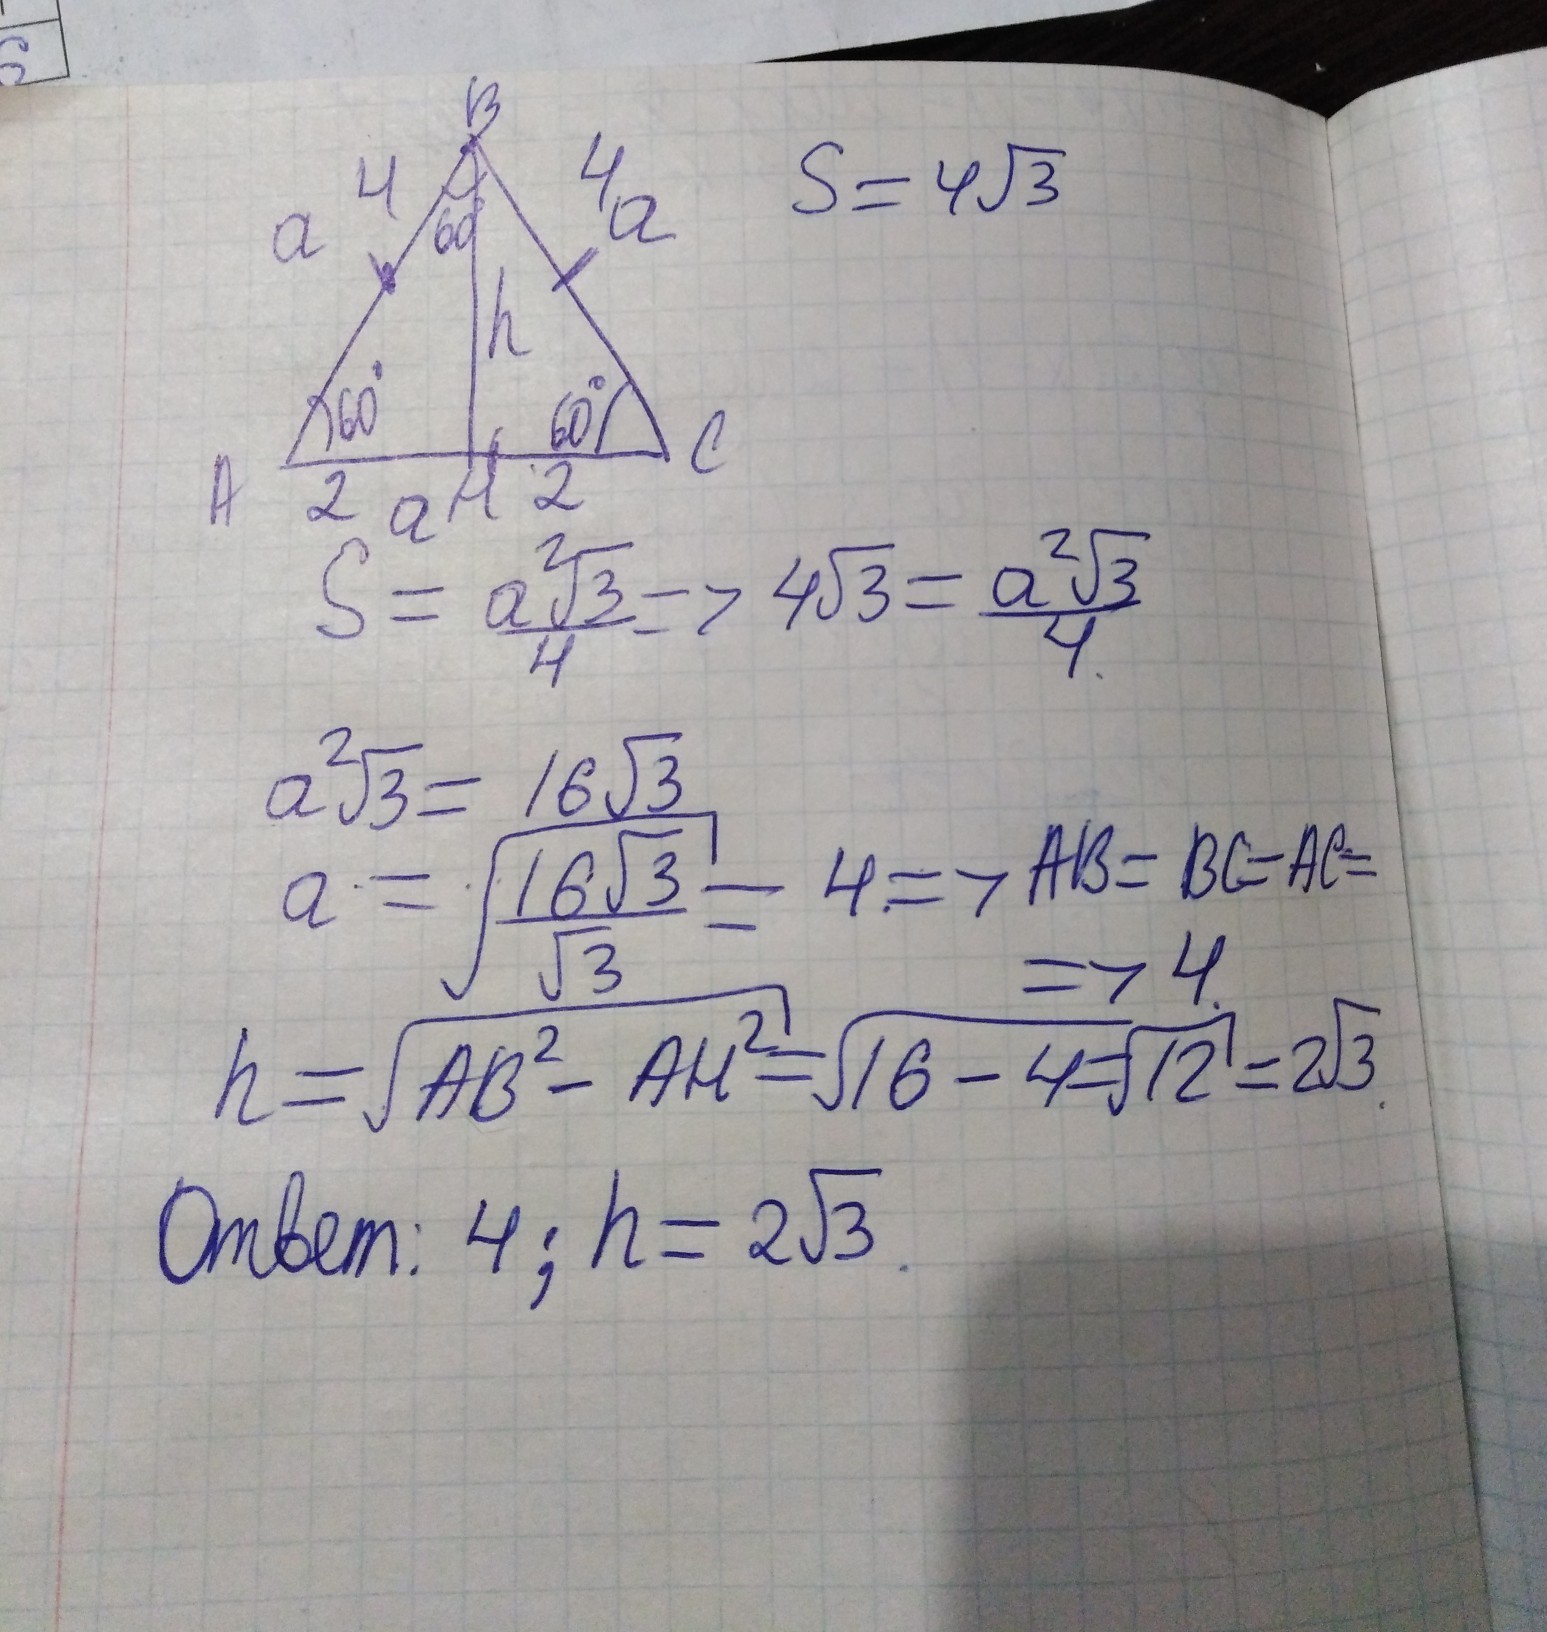 B
4 4
a a S = 4√3
60°
h
60° 60°
A 2 a H 2 C
S = a²√3/4 => 4√3 = a²√3/4.
a²√3 = 16√3
a = √(16√3/√3) = 4. => AB = BC = AC =
=> 4.
h = √(AB² - AH²) = √(16 - 4) = √12 = 2√3.
Ответ: 4; h = 2√3.